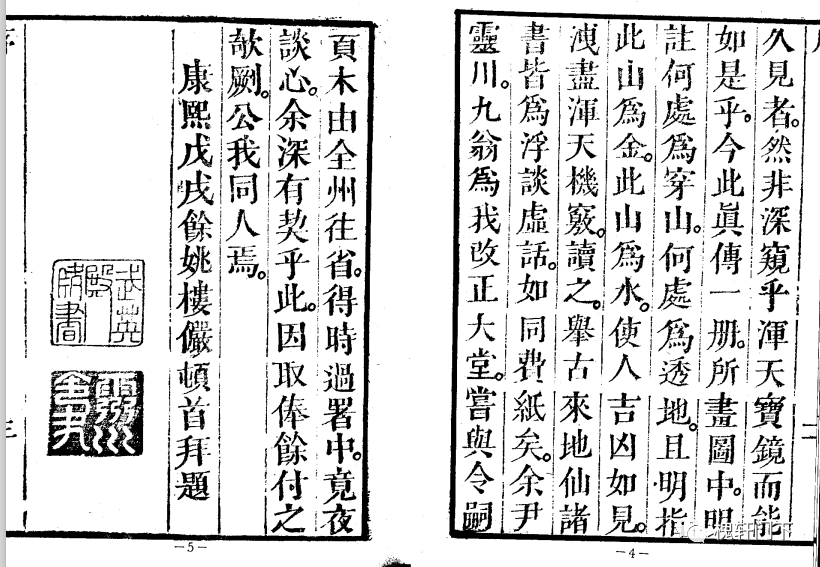 久見者。然非深窺乎渾天寶鏡而能
如是乎。今此眞傳一册。所畫圖中。明
註何處爲穿山。何處爲透地。且明指
此山爲金。此山爲水。使人吉凶如見。
洩盡渾天機竅。讀之。舉古來地仙諸
書皆爲浮談虛話。如同費紙矣。余尹
靈川。九翁爲我改正大堂。嘗與令嗣
二
－4－
頁木由全州往省。得時過署中。竟夜
談心。余深有契乎此。因取俸餘付之
欹劂。公我同人焉。
康熙戊戌餘姚樓儼頓首拜題
武英殿
書
靈川
三
－5－
槐轩门下